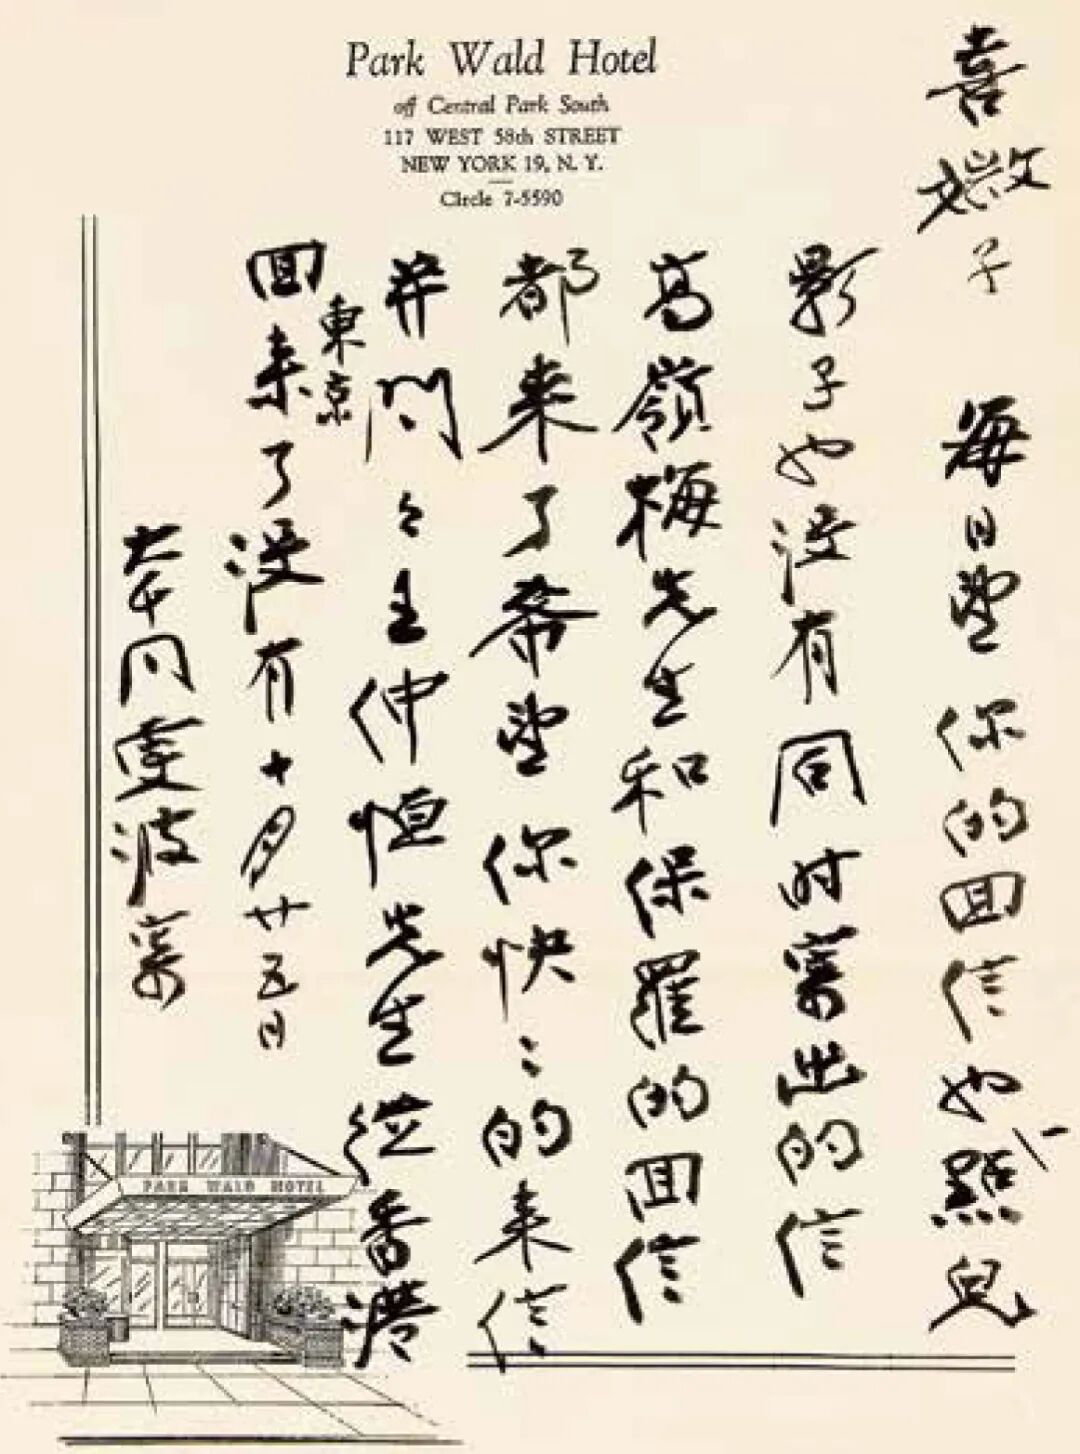 Park Wald Hotel
off Central Park South
117 WEST 58th STREET
NEW YORK 19, N. Y.
Circle 7-5590
喜媺子 每日望你的回信也一點兒
影子也沒有同时寄出的信
高嶺梅先生和保羅的回信
都來了希望你快〻的来信
并問々王仲恒先生從香港
東京
回来了沒有十月廿五日
大千同雯波寄
PARK WALD HOTEL